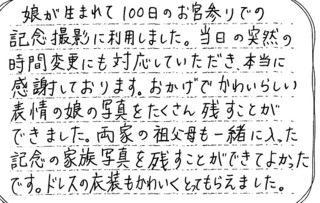 娘が生まれて100日のお宮参りでの
記念撮影に利用しました。当日の突然の
時間変更にも対応していただき、本当に
感謝しております。おかげでかわいらしい
表情の娘の写真をたくさん残すことが
できました。両家の祖父母も一緒に入った
記念の家族写真を残すことができてよかった
です。ドレスの衣装もかわいくとってもらえました。